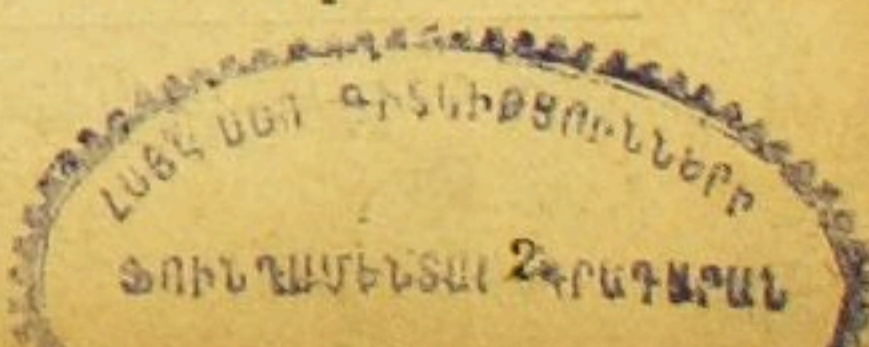 ՀՍՍՀ ՍՍՌ ԳԻՏՆԻԹՅՈՒՆՆԵՐԻ
ՖՈՒՆԴԱՄԵՆՏԱԼ 2ԳՐԱԴԱՐԱՆ